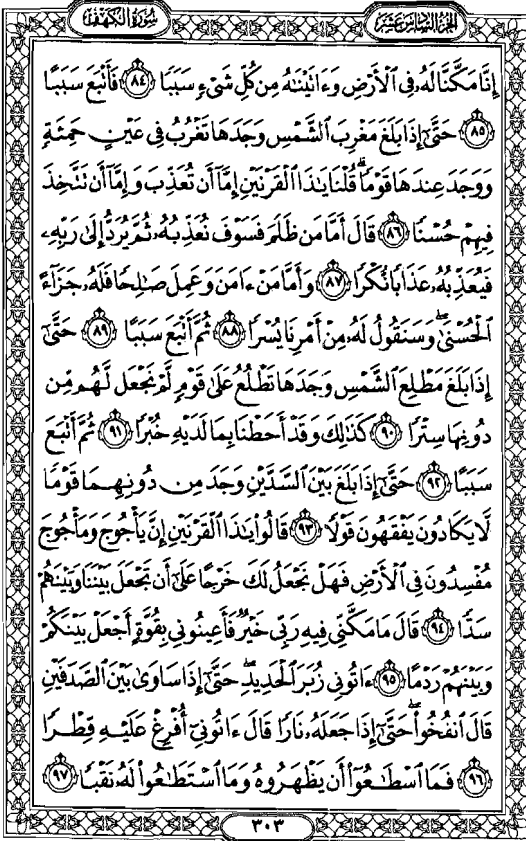 سُورَةُ الكَهۡفِ
الجُزءُ السَّادِسَ عَشَرَ
إِنَّا مَكَّنَّا لَهُۥ فِي ٱلۡأَرۡضِ وَءَاتَيۡنَٰهُ مِن كُلِّ شَيۡءٖ سَبَبٗا ٨٤ فَأَتۡبَعَ سَبَبًا
٨٥ حَتَّىٰٓ إِذَا بَلَغَ مَغۡرِبَ ٱلشَّمۡسِ وَجَدَهَا تَغۡرُبُ فِي عَيۡنٍ حَمِئَةٖ
وَوَجَدَ عِندَهَا قَوۡمٗاۖ قُلۡنَا يَٰذَا ٱلۡقَرۡنَيۡنِ إِمَّآ أَن تُعَذِّبَ وَإِمَّآ أَن تَتَّخِذَ
فِيهِمۡ حُسۡنٗا ٨٦ قَالَ أَمَّا مَن ظَلَمَ فَسَوۡفَ نُعَذِّبُهُۥ ثُمَّ يُرَدُّ إِلَىٰ رَبِّهِۦ
فَيُعَذِّبُهُۥ عَذَابٗا نُّكۡرٗا ٨٧ وَأَمَّا مَنۡ ءَامَنَ وَعَمِلَ صَٰلِحٗا فَلَهُۥ جَزَآءً
ٱلۡحُسۡنَىٰۖ وَسَنَقُولُ لَهُۥ مِنۡ أَمۡرِنَا يُسۡرٗا ٨٨ ثُمَّ أَتۡبَعَ سَبَبًا ٨٩ حَتَّىٰٓ
إِذَا بَلَغَ مَطۡلِعَ ٱلشَّمۡسِ وَجَدَهَا تَطۡلُعُ عَلَىٰ قَوۡمٖ لَّمۡ نَجۡعَل لَّهُم مِّن
دُونِهَا سِتۡرٗا ٩٠ كَذَٰلِكَۖ وَقَدۡ أَحَطۡنَا بِمَا لَدَيۡهِ خُبۡرٗا ٩١ ثُمَّ أَتۡبَعَ
سَبَبًا ٩٢ حَتَّىٰٓ إِذَا بَلَغَ بَيۡنَ ٱلسَّدَّيۡنِ وَجَدَ مِن دُونِهِمَا قَوۡمٗا
لَّا يَكَادُونَ يَفۡقَهُونَ قَوۡلٗا ٩٣ قَالُواْ يَٰذَا ٱلۡقَرۡنَيۡنِ إِنَّ يَأۡجُوجَ وَمَأۡجُوجَ
مُفۡسِدُونَ فِي ٱلۡأَرۡضِ فَهَلۡ نَجۡعَلُ لَكَ خَرۡجًا عَلَىٰٓ أَن تَجۡعَلَ بَيۡنَنَا وَبَيۡنَهُمۡ
سَدّٗا ٩٤ قَالَ مَا مَكَّنِّي فِيهِ رَبِّي خَيۡرٞ فَأَعِينُونِي بِقُوَّةٍ أَجۡعَلۡ بَيۡنَكُمۡ
وَبَيۡنَهُمۡ رَدۡمًا ٩٥ ءَاتُونِي زُبَرَ ٱلۡحَدِيدِۖ حَتَّىٰٓ إِذَا سَاوَىٰ بَيۡنَ ٱلصَّدَفَيۡنِ
قَالَ ٱنفُخُواْۖ حَتَّىٰٓ إِذَا جَعَلَهُۥ نَارٗا قَالَ ءَاتُونِيٓ أُفۡرِغۡ عَلَيۡهِ قِطۡرٗا
٩٦ فَمَا ٱسۡطَٰعُوٓاْ أَن يَظۡهَرُوهُ وَمَا ٱسۡتَطَٰعُواْ لَهُۥ نَقۡبٗا ٩٧
٣٠٣